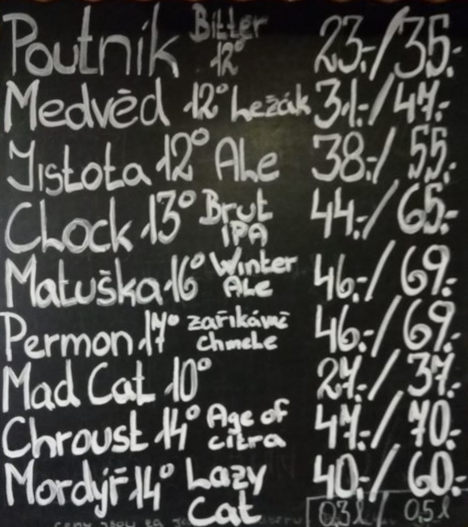 Poutník Bitter 12° 23.-/35.-
Medvěd 12° Ležák 31.-/47.-
Jistota 12° Ale 38.-/55.-
Clock 13° Brut IPA 44.-/65.-
Matuška 16° Winter Ale 46.-/69.-
Permon 17° zaříkávač chmele 46.-/69.-
Mad Cat 10° 27.-/37.-
Chroust 14° Age of citra 47.-/70.-
Mordýř 14° Lazy Cat 40.-/60.-
0.3l / 0.5l